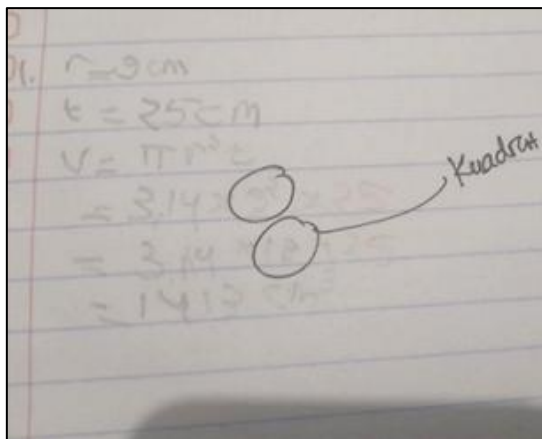 r = 9 cm
t = 25 cm
V = πr²t
= 3.14 × 9² × 25
= 3.14 × 18 × 25
= 1413 cm³
Kuadrat